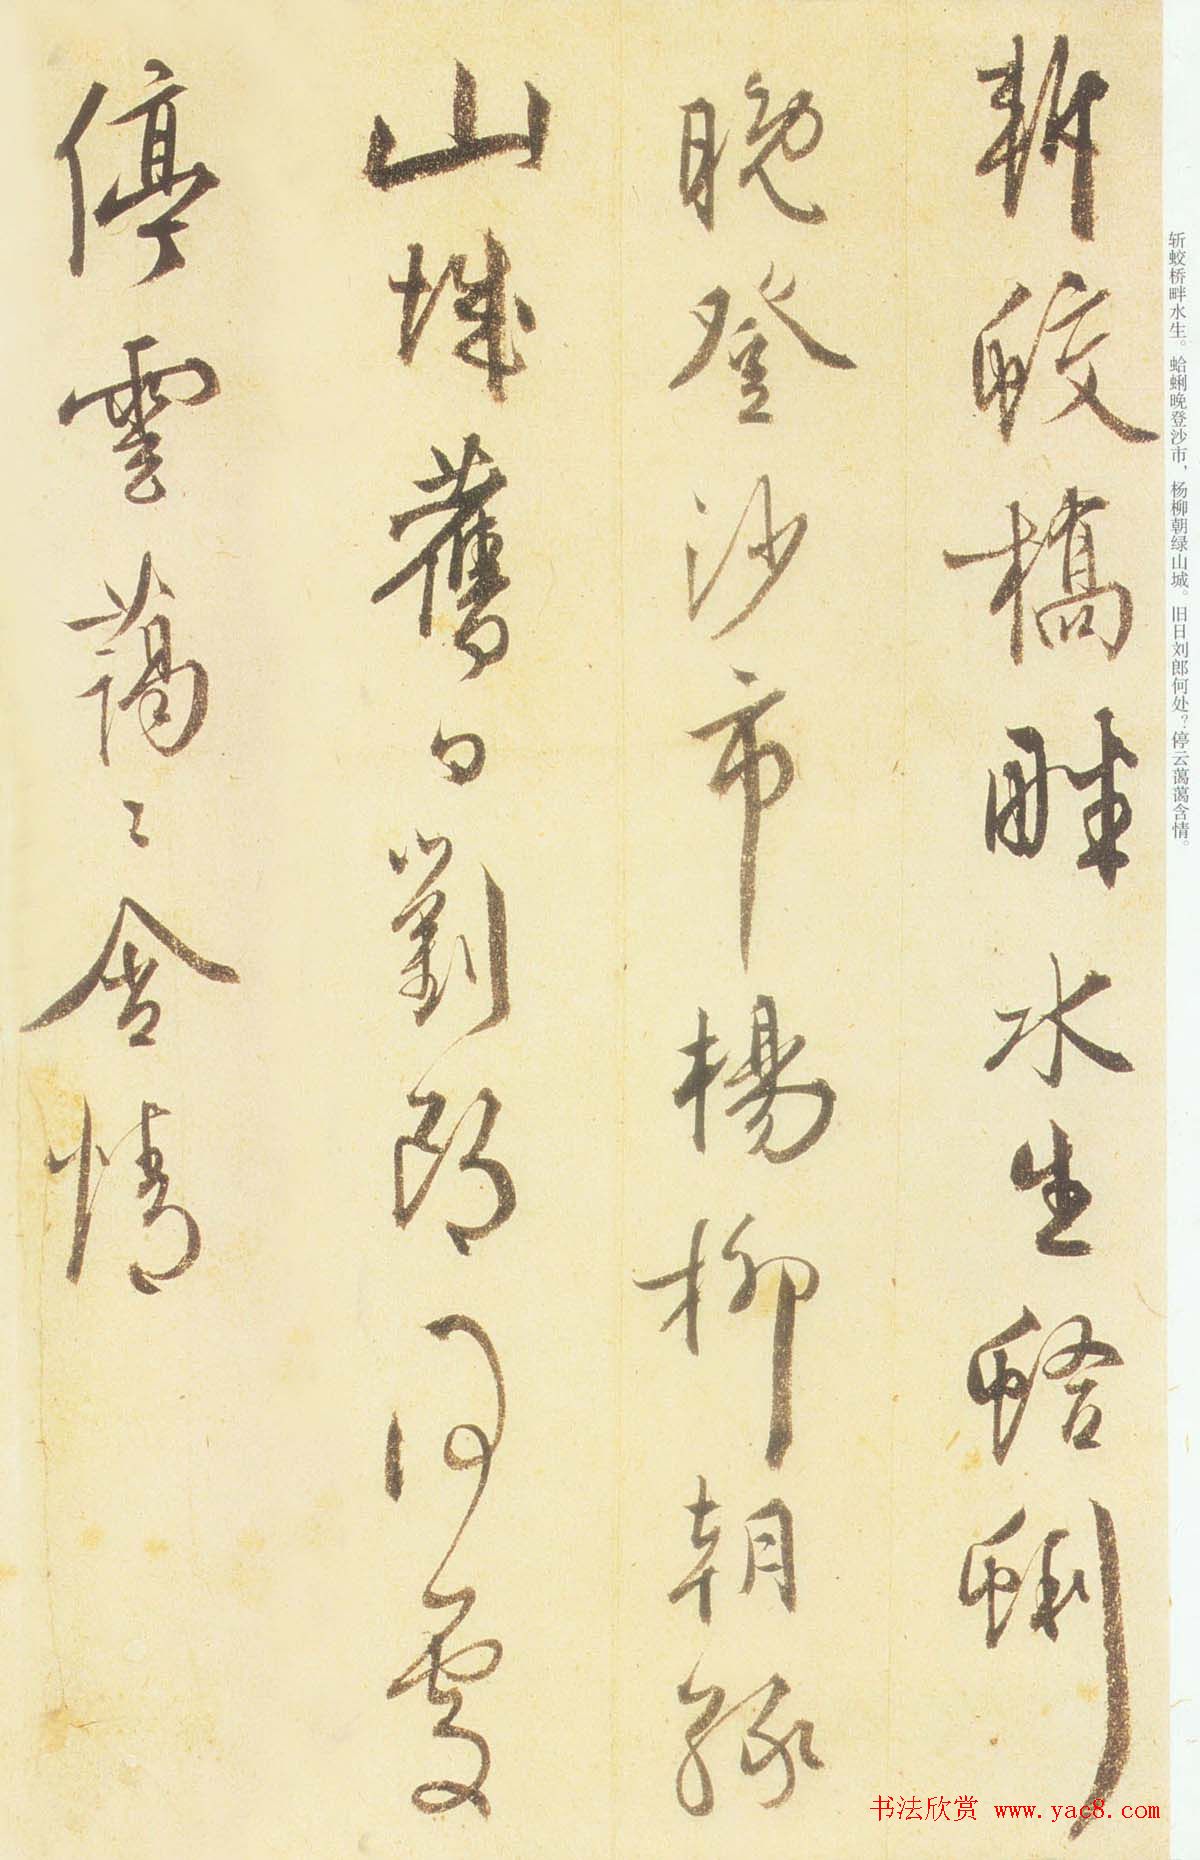 斩蛟桥畔水生。蛤蜊晚登沙市，杨柳朝绿山城。旧日刘郎何处？停云蔼蔼含情。
斬蛟橋畔水生蛤蜊
晚登沙市楊柳朝綠
山城舊日劉郎何處
停雲藹〻含情
书法欣赏 www.yac8.com